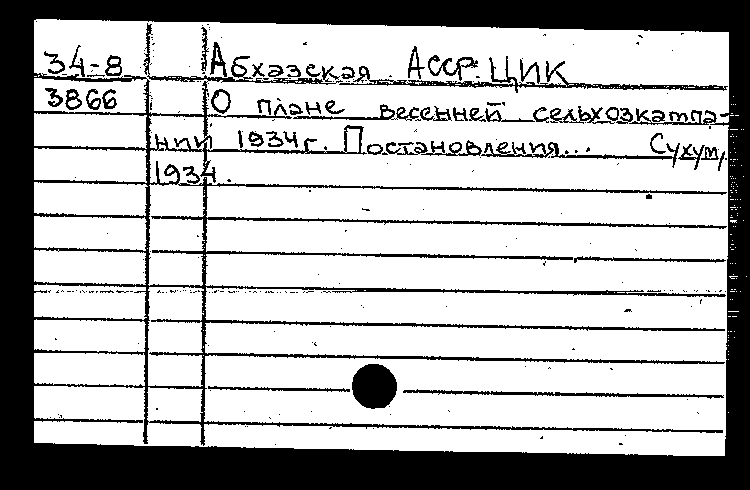 34-8 Абхазская АССР. ЦИК
3866 О плане весенней сельхозкампа-
нии 1934г. Постановления... Сухум,
1934.